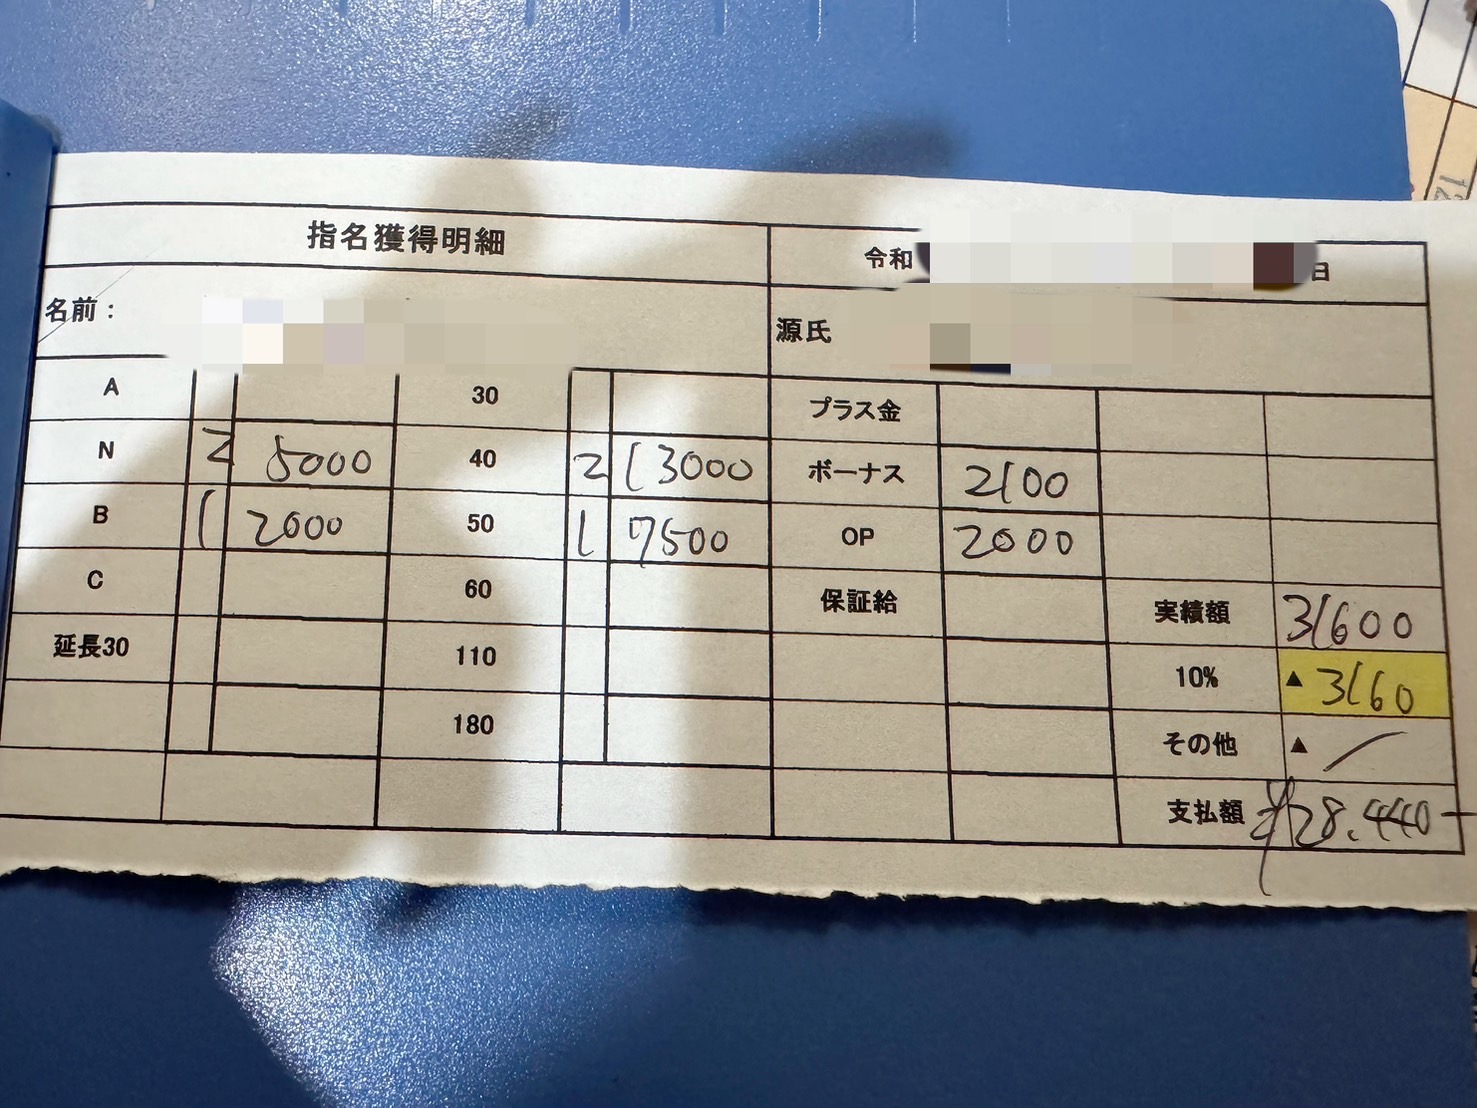 指名獲得明細 令和 日
名前： 源氏
A 30 プラス金
N 2 5000 40 2 13000 ボーナス 2100
B 1 2000 50 1 7500 OP 2000
C 60 保証給 実績額 31600
延長30 110 10% ▲ 3160
180 その他 ▲ /
支払額 ¥28.440-